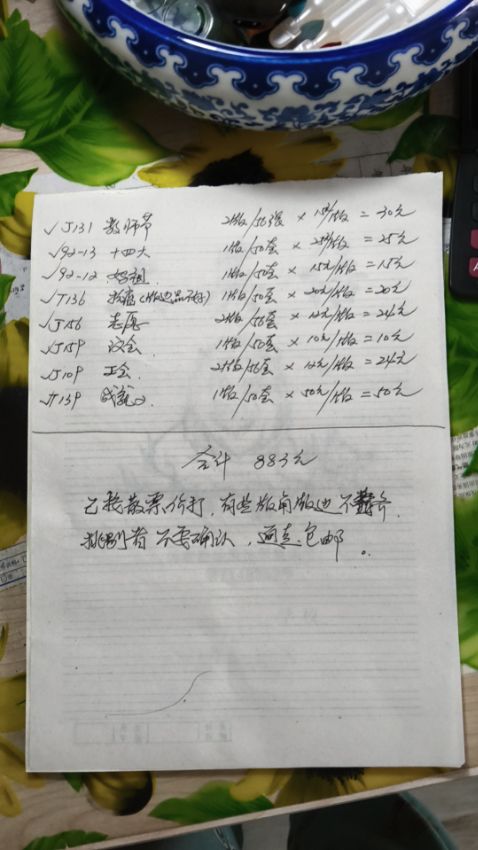 ✓J131 教师节 2版/56张 × 15/版 = 30元
✓92-13 十四大 1版/50套 × 25/版 = 25元
✓92-12 妈祖 1版/50套 × 15元/版 = 15元
✓T136 (版边品不好) 1版/50套 × 20元/版 = 20元
✓J156 志愿 2版/56套 × 12元/版 = 24元
✓J159 议会 1版/50套 × 10元/版 = 10元
✓J109 工会 2版/56套 × 12元/版 = 24元
✓T139 成就 1版/50套 × 50元/版 = 50元
合计 883元
已按散票价打,有些版角版边不齐
挑剔者不要确认,通走包邮。